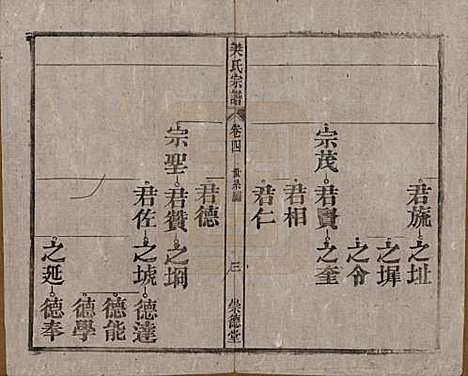 君旒 之址
之墀
之令
宗茂 君賢 之奎
君相
君仁
氏宗譜 卷四 世系圖 三 崇德堂
君德
宗聖 君贊 之坰
君佐 之垅 德達
德能
德學
之延 德奉